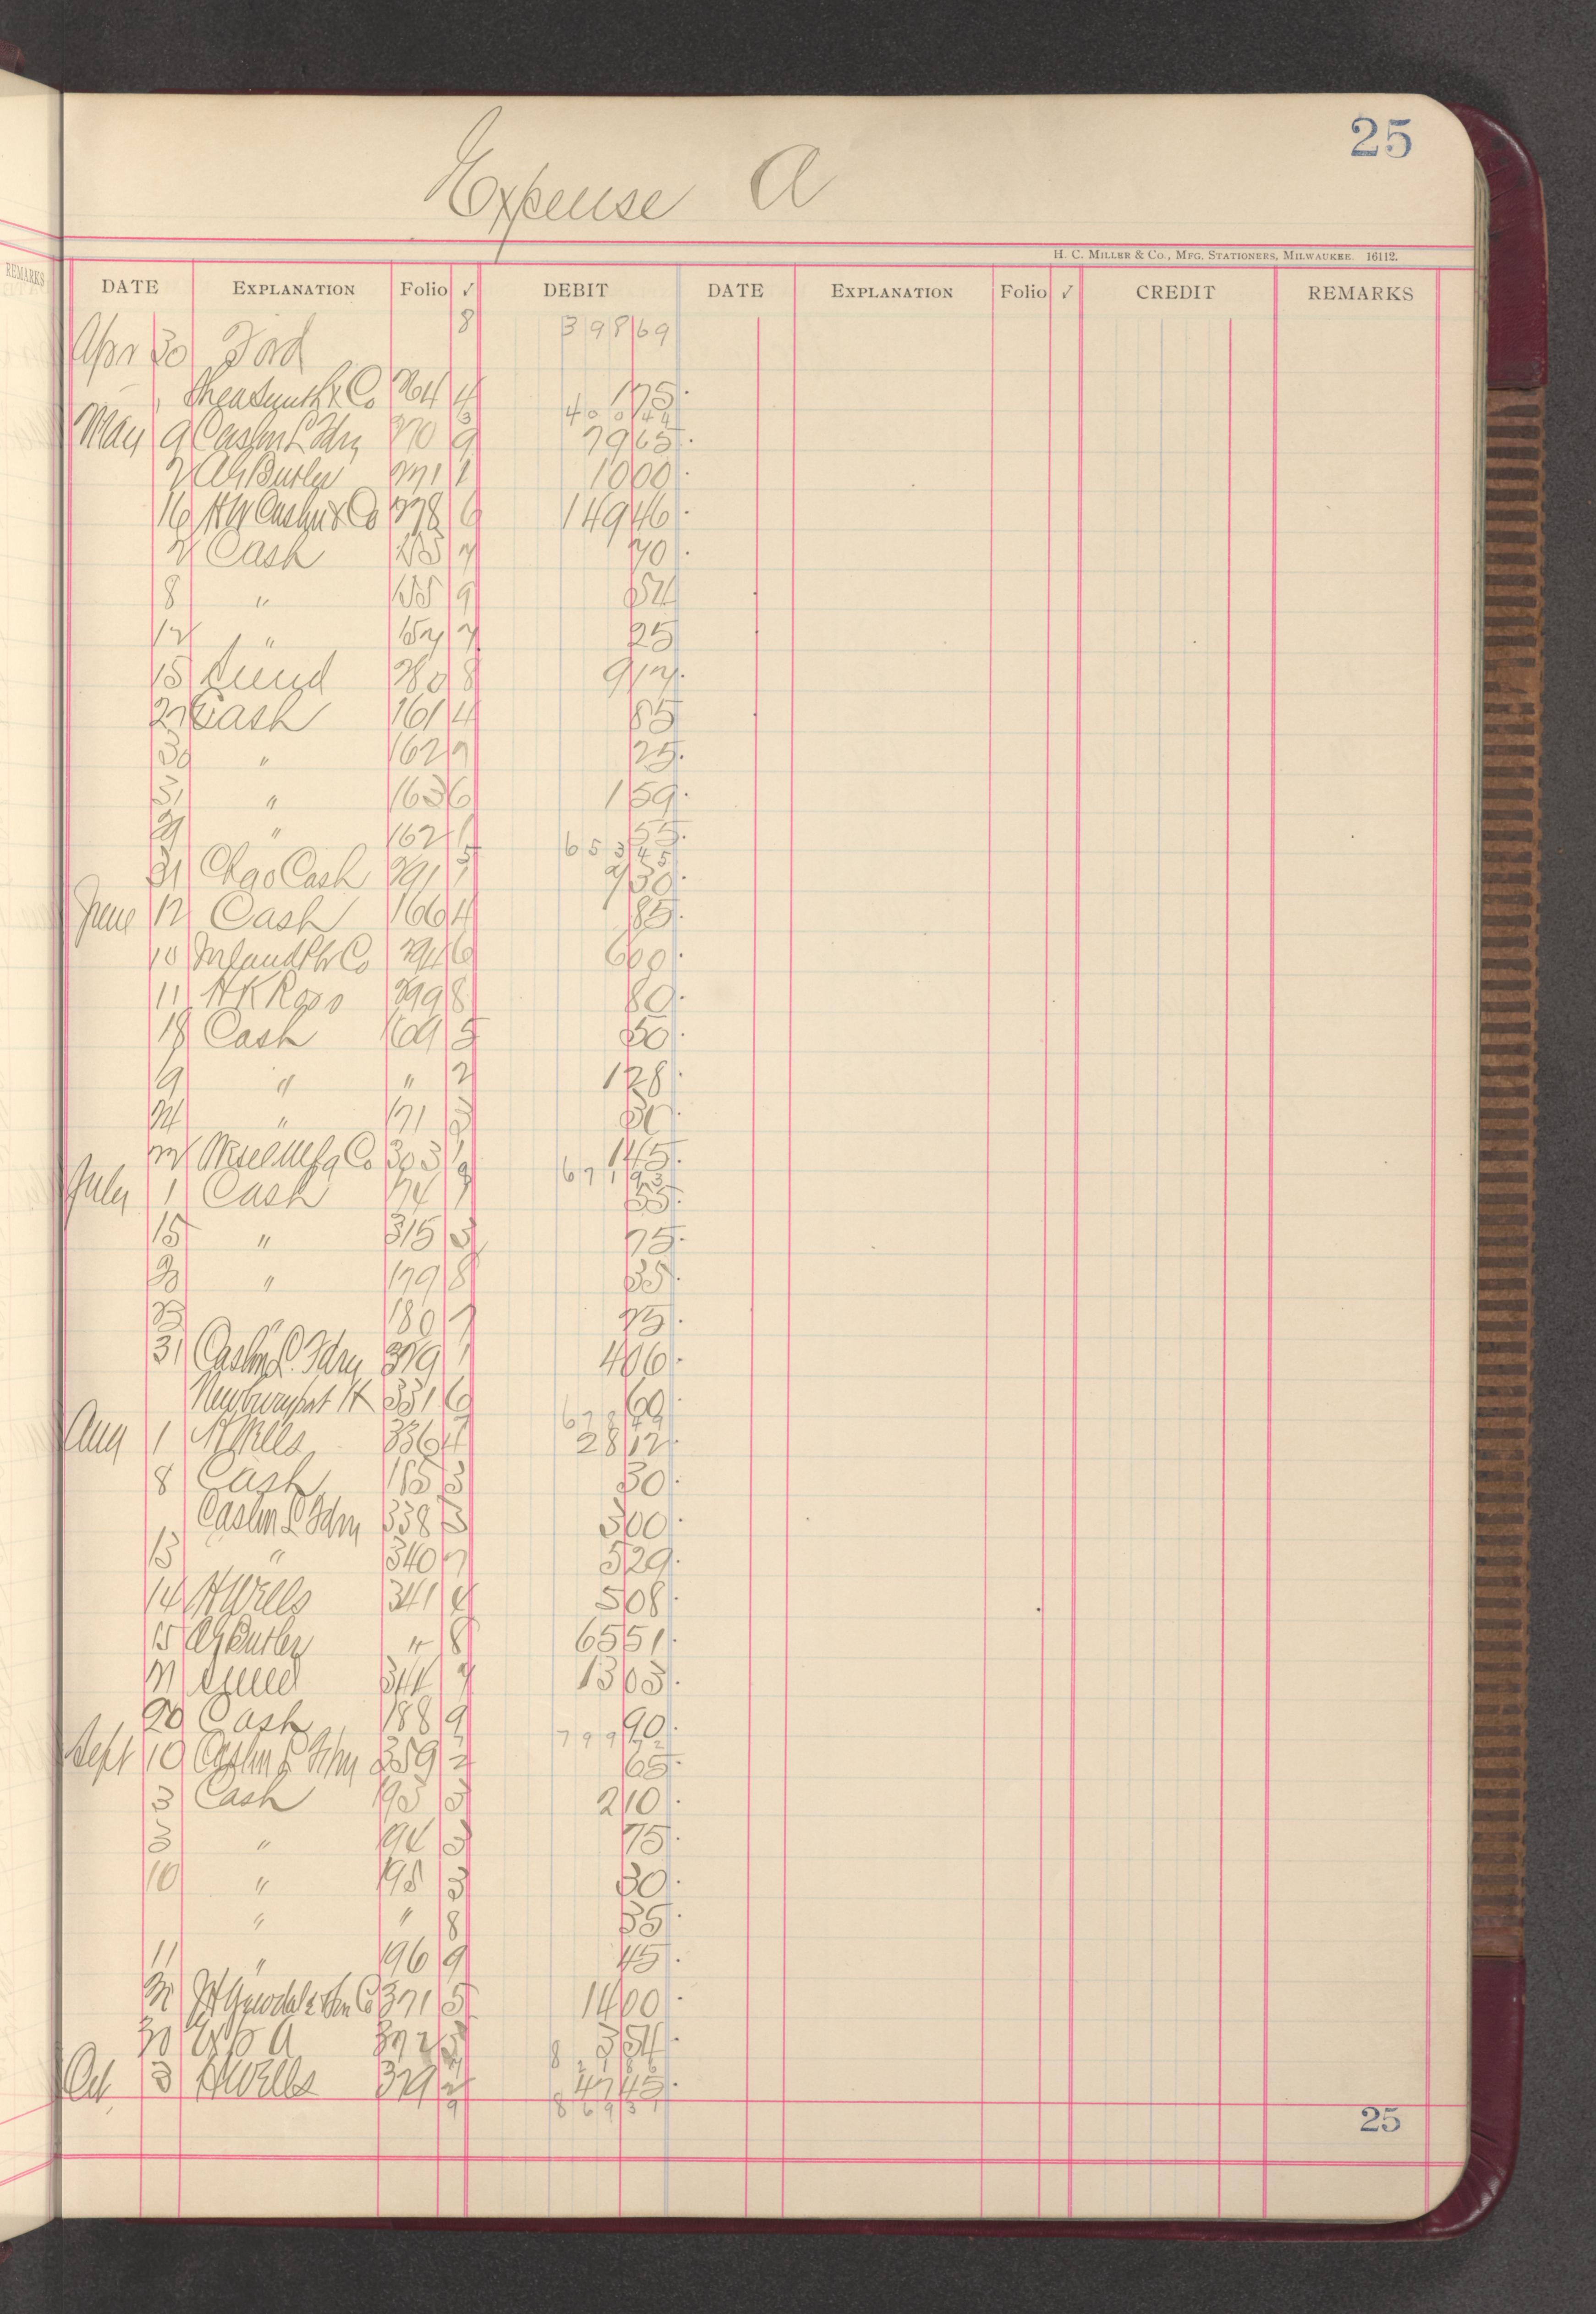 25
Expense A
H. C. MILLER & CO., MFG. STATIONERS, MILWAUKEE. 16112.
REMARKS
DATE EXPLANATION Folio ✓ DEBIT DATE EXPLANATION Folio ✓ CREDIT REMARKS
Apr 30 Ford 8 398 69
Shea Smith & Co 264 4 1 75
3 400 44
May 9 Caslin L Fdry 270 9 79 65
2 A G Butler 271 1 10 00
16 H W Caslin & Co 278 6 149 46
2 Cash 153 7 70
8 " 155 9 54
12 " 157 7 25
15 Lund 280 8 9 17
27 Cash 161 4 85
30 " 162 7 25
31 " 163 6 1 59
29 " 162 1 55
5 653 45
31 Chgo Cash 291 1 7 30
June 12 Cash 166 4 85
10 Inland Ptr Co 294 6 6 00
11 H K Ross 299 8 80
18 Cash 169 5 50
19 " " 2 1 28
24 " 171 3 30
Wesel Mfg Co 303 1 1 45
9 671 93
July 1 Cash 174 1 55
15 " 315 3 75
20 " 179 8 35
23 " 180 7 25
31 Caslin L. Fdry 329 1 4 06
Newburyport H 331 6 60
678 49
Aug 1 H Wells 336 4 28 12
8 Cash 185 3 30
Caslin L Fdry 338 3 3 00
13 " 340 7 5 29
14 H Wells 341 4 5 08
15 A G Butler " 8 65 51
Lund 344 7 13 03
20 Cash 188 9 90
799 72
Sept 10 Caslin L Fdry 359 2 65
3 Cash 193 3 2 10
3 " 194 3 75
10 " 195 3 30
" " 8 35
11 " 196 9 45
371 5 14 00
30 Exp A 372 5 3 54
Oct 3 H Wells 379 2 47 45
9 869 31
25